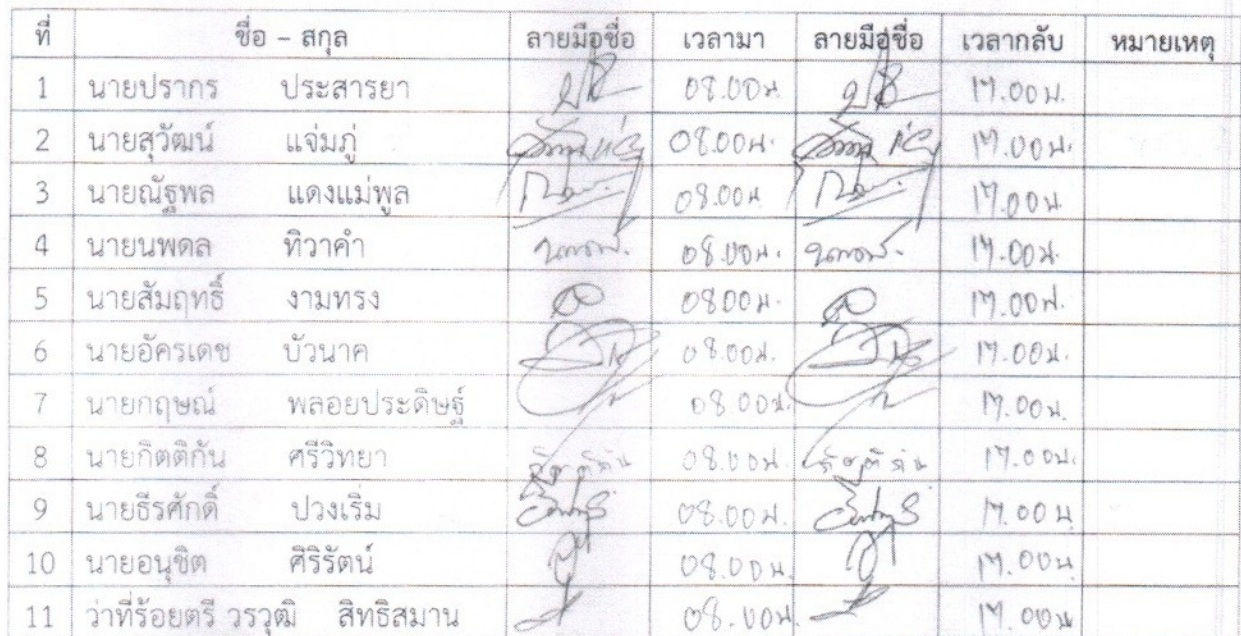 ที่ ชื่อ – สกุล ลายมือชื่อ เวลามา ลายมือชื่อ เวลากลับ หมายเหตุ
1 นายปรากร ประสารยา 08.00น. 17.00น.
2 นายสุวัฒน์ แจ่มภู่ 08.00น. 17.00น.
3 นายณัฐพล แดงแม่พูล 08.00น 17.00น
4 นายนพดล ทิวาคำ 08.00น. 17.00น.
5 นายสัมฤทธิ์ งามทรง 08.00น. 17.00น.
6 นายอัครเดช บัวนาค 08.00น. 17.00น.
7 นายกฤษณ์ พลอยประดิษฐ์ 08.00น. 17.00น.
8 นายกิตติกัน ศรีวิทยา กิตติกัน 08.00น. กิตติกัน 17.00น.
9 นายธีรศักดิ์ ปวงเริ่ม 08.00น. 17.00น
10 นายอนุชิต ศิริรัตน์ 08.00น. 17.00น
11 ว่าที่ร้อยตรี วรวุฒิ สิทธิสมาน 08.00น. 17.00น